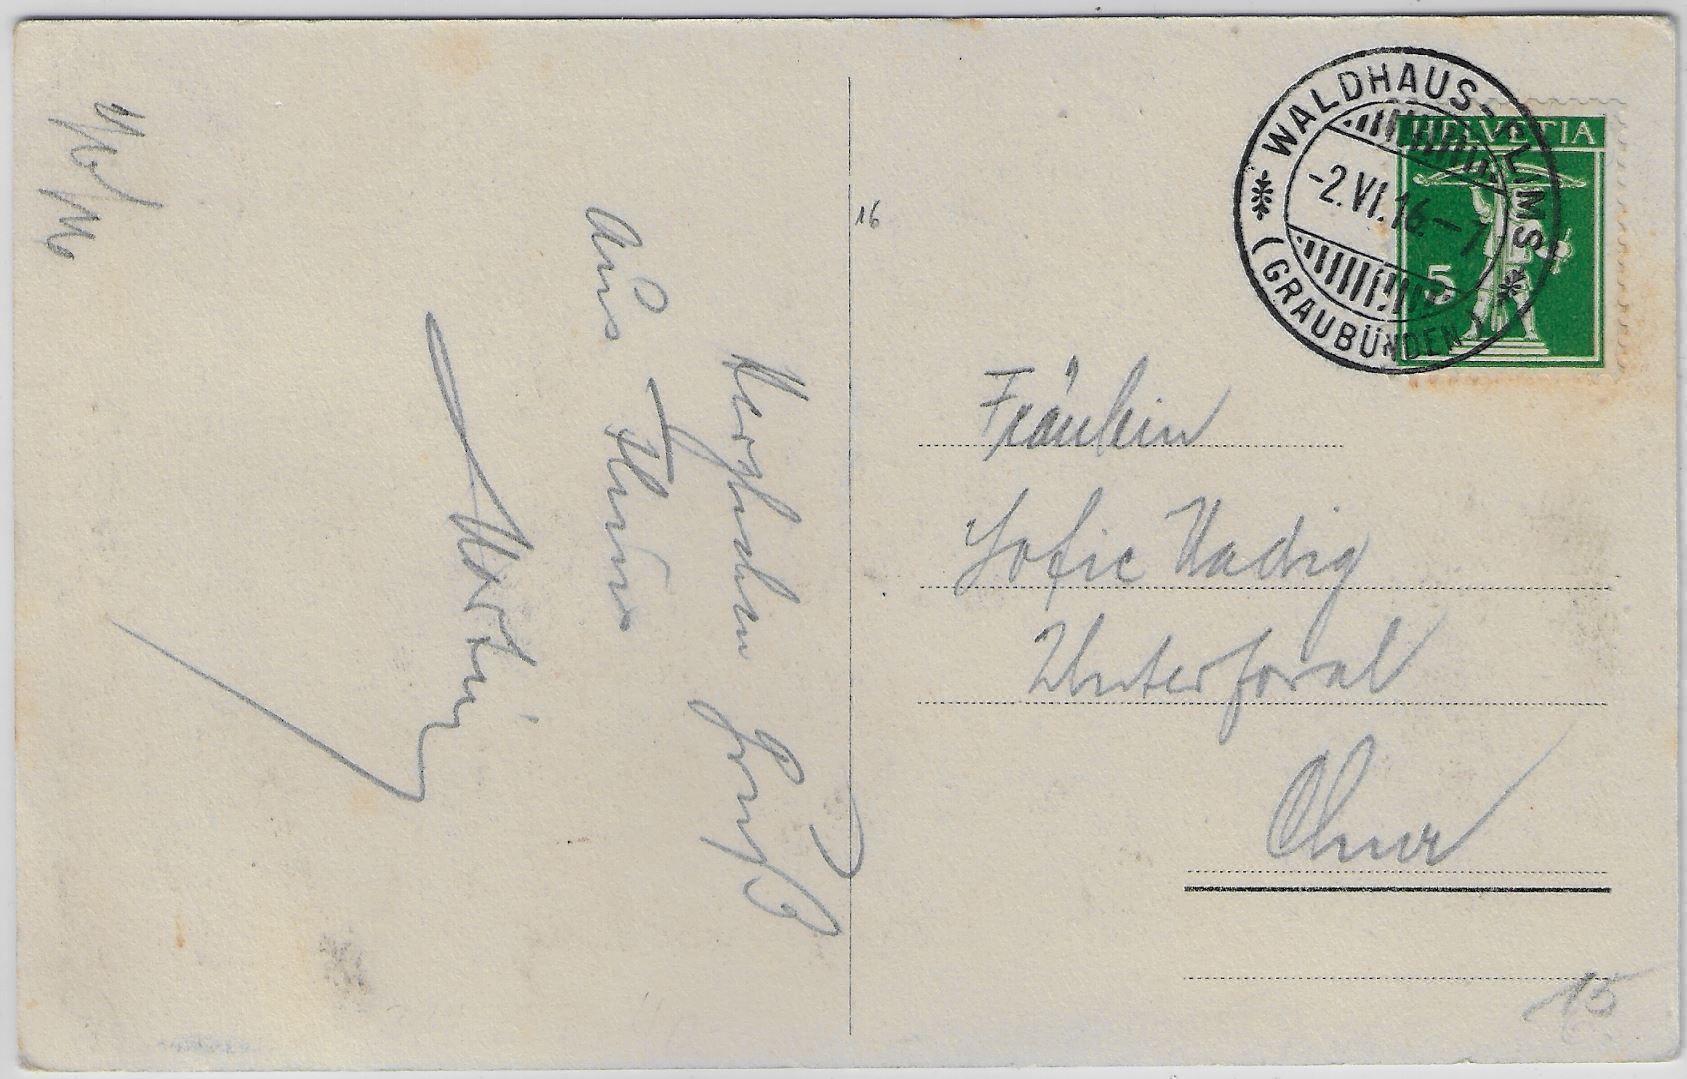 WALDHAUS-FLIMS
-2.VI.16.-7
(GRAUBÜNDEN)
HELVETIA
5
16
Herzlichen Gruß
aus Flims
Fräulein
Sofie Nadig
Unter
Chur
15